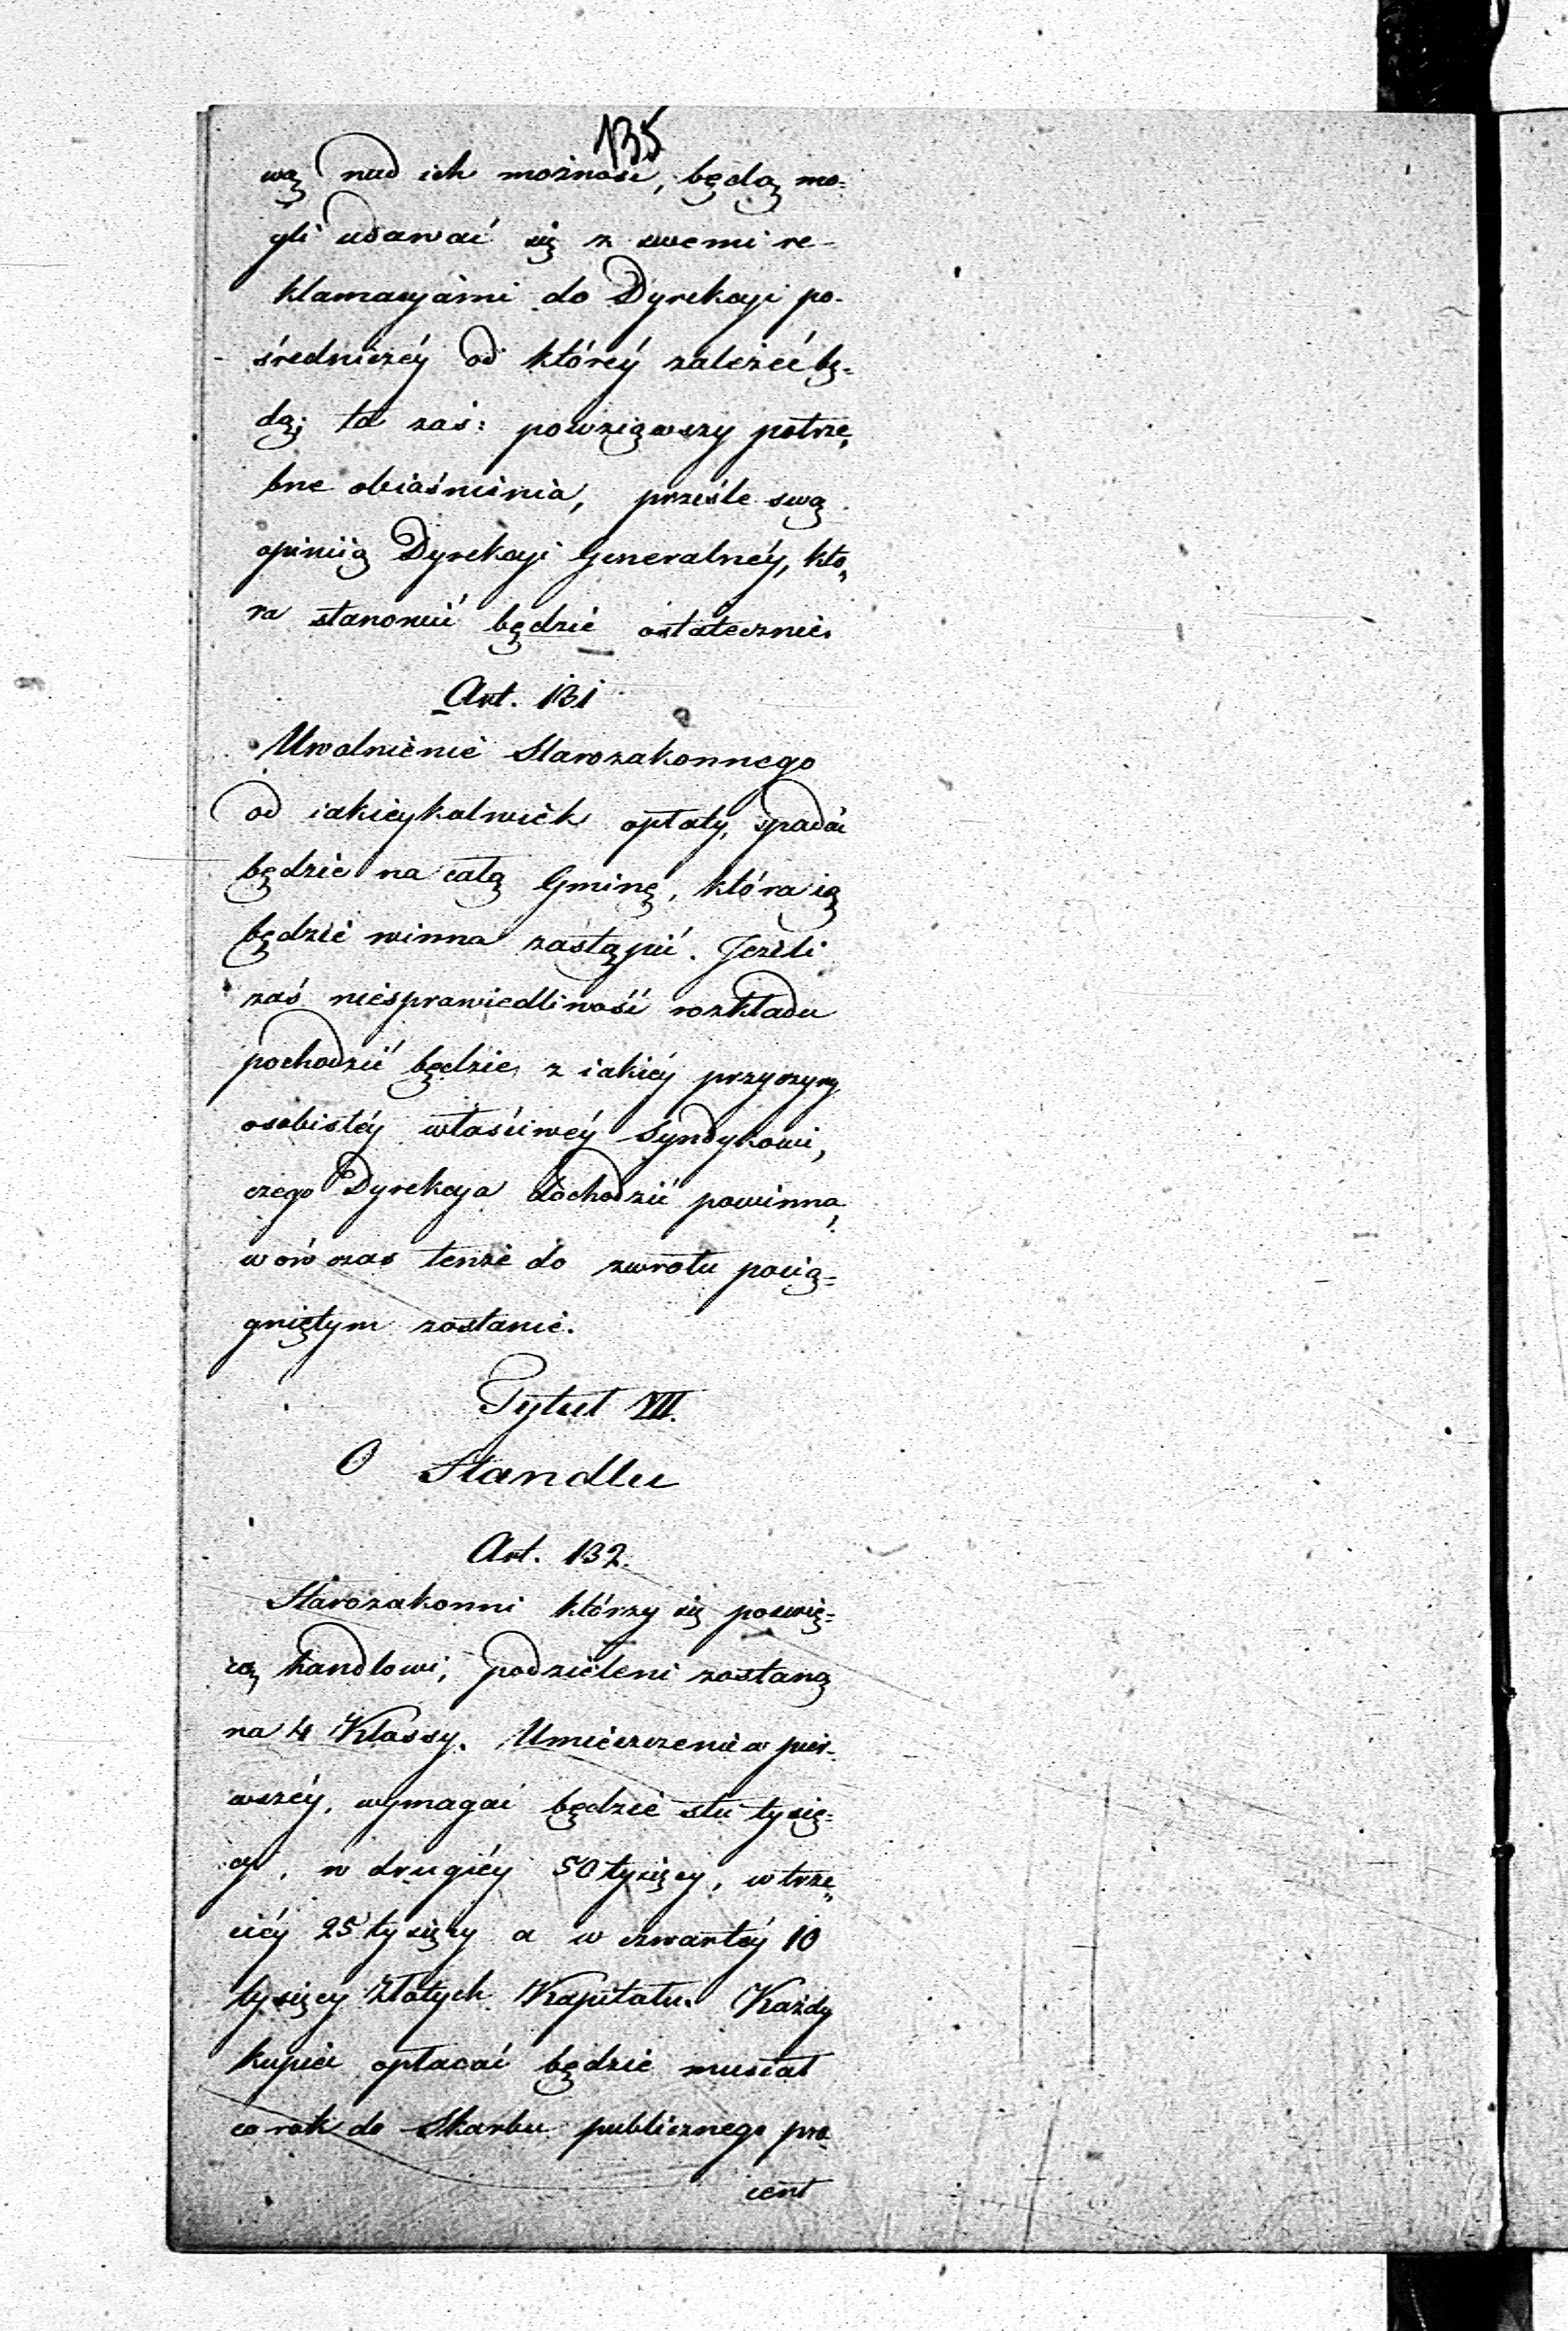 135
wą nad ich możność, będą mo-
gli udawać się z swemi re-
klamacyiami do Dyrekcyi po-
średniczéy od któréy zależéć bę-
dą; ta zaś: powziąwszy potrze-
bne obiaśnienia, prześle swą
opiniią Dyrekcyi Generalnéy, któ-
ra stanowić będzie ostatecznie.
Art. 131
Uwolnienie Starozakonnego
od iakieykolwiek opłaty, spadać
będzie na całą Gminę, która ią
będzie winna zastąpić. Jeżeli
zaś niesprawiedliwość rozkładu
pochodzić będzie z iakiéy przyczyny
osobistéy właściwéy Syndykowi,
czego Dyrekcya dochodzić powinna,
wówczas tenże do zwrotu pocią-
gniętym zostanie.
Tytuł VII.
O Handlu
Art. 132.
Starozakonni którzy się poświę-
cą handlowi, podzieleni zostaną
na 4 Klassy. Umieszczenie w pier-
wszéy, wymagać będzie stu tysię-
cy, w drugiéy 50 tysięcy, w trze-
ciéy 25 tysięcy a w czwartéy 10
tysięcy Złotych Kapitału. Każdy
kupiec opłacać będzie musiał
co rok do Skarbu publicznego pro-
cent